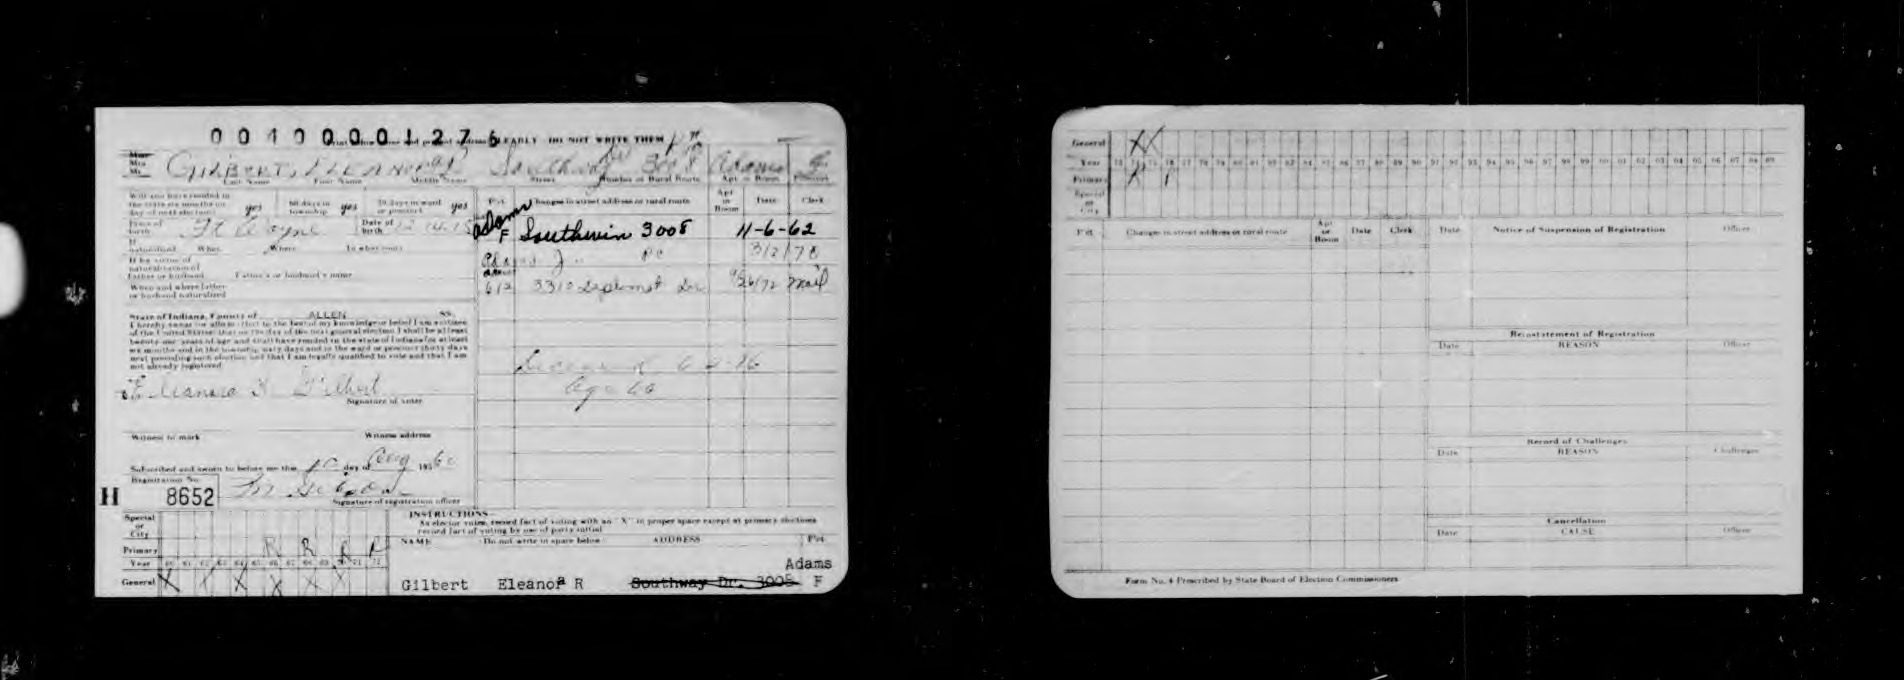 00400001276
Print below name and present address CLEARLY - DO NOT WRITE THEM
Miss
Mrs
Mr.
GILBERT, ELEANOR R Southway Dr 3008 Adams F
Last Name First Name Middle Name Street Number or Rural Route Apt. or Room Precinct
Will you have resided in the state six months on day of next election? yes 60 days in township yes 30 days in ward or precinct yes
Place of birth Ft Wayne Date of birth
If naturalized When Where In what court
If by virtue of naturalization of Father or husband Father's or husband's name
When and where father or husband naturalized
State of Indiana, County of ALLEN SS.
I hereby swear (or affirm) that to the best of my knowledge or belief I am a citizen
of the United States; that on the day of the next general election I shall be at least
twenty-one years of age and shall have resided in the state of Indiana for at least
six months and in the township sixty days and in the ward or precinct thirty days
next preceding such election and that I am legally qualified to vote and that I am
not already registered
Eleanora R Gilbert
Signature of voter
Witness to mark Witness address
Subscribed and sworn to before me this day of Aug 19
Registration No.
H 8652
Signature of registration officer
Pct. Changes in street address or rural route Apt or Room Date Clerk
Adams F Southwin 3008 11-6-62
Adams PC
Adams 612 3310 Diplomat Dr. 9/26/72 Mail
Deceased 6-2-76
Age 60
INSTRUCTIONS
As elector votes, record fact of voting with an "X" in proper space except at primary elections
record fact of voting by use of party initial
NAME Do not write in space below ADDRESS Pct
Special or City
Primary R R R R
Year 60 61 62 63 64 65 66 67 68 69 70 71 72
General X X X X X X
Adams
Gilbert Eleanora R Southway Dr. 3008 F
General X X
Year 73 74 75 76 77 78 79 80 81 82 83 84 85 86 87 88 89 90 91 92 93 94 95 96 97 98 99 00 01 02 03 04 05 06 07 08 09
Primary
Special or City
Pct Changes in street address or rural route Apt or Room Date Clerk
Date Notice of Suspension of Registration Officer
Reinstatement of Registration
Date REASON Officer
Record of Challenges
Date REASON Challenger
Cancellation
Date CAUSE Officer
Form No. 4 Prescribed by State Board of Election Commissioners